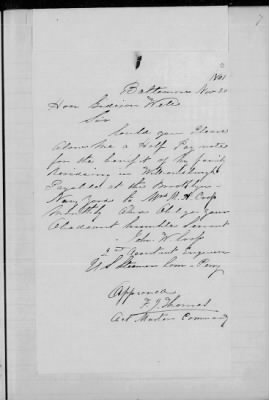 No 1
Baltimore Nov 20
Hon Gideon Wells
Sir
Could you Please
Allow me a Half Pay note
for the benefit of my family
Residing in Williamsburgh
Payable at the Brooklyn
Navy Yard to Mrs
And Oblige your
Obedient humble Servant
John W
2nd Assistant Engineer
U S Steamer Com Perry
Approved
F. J. Thomas
Act Master Commdg